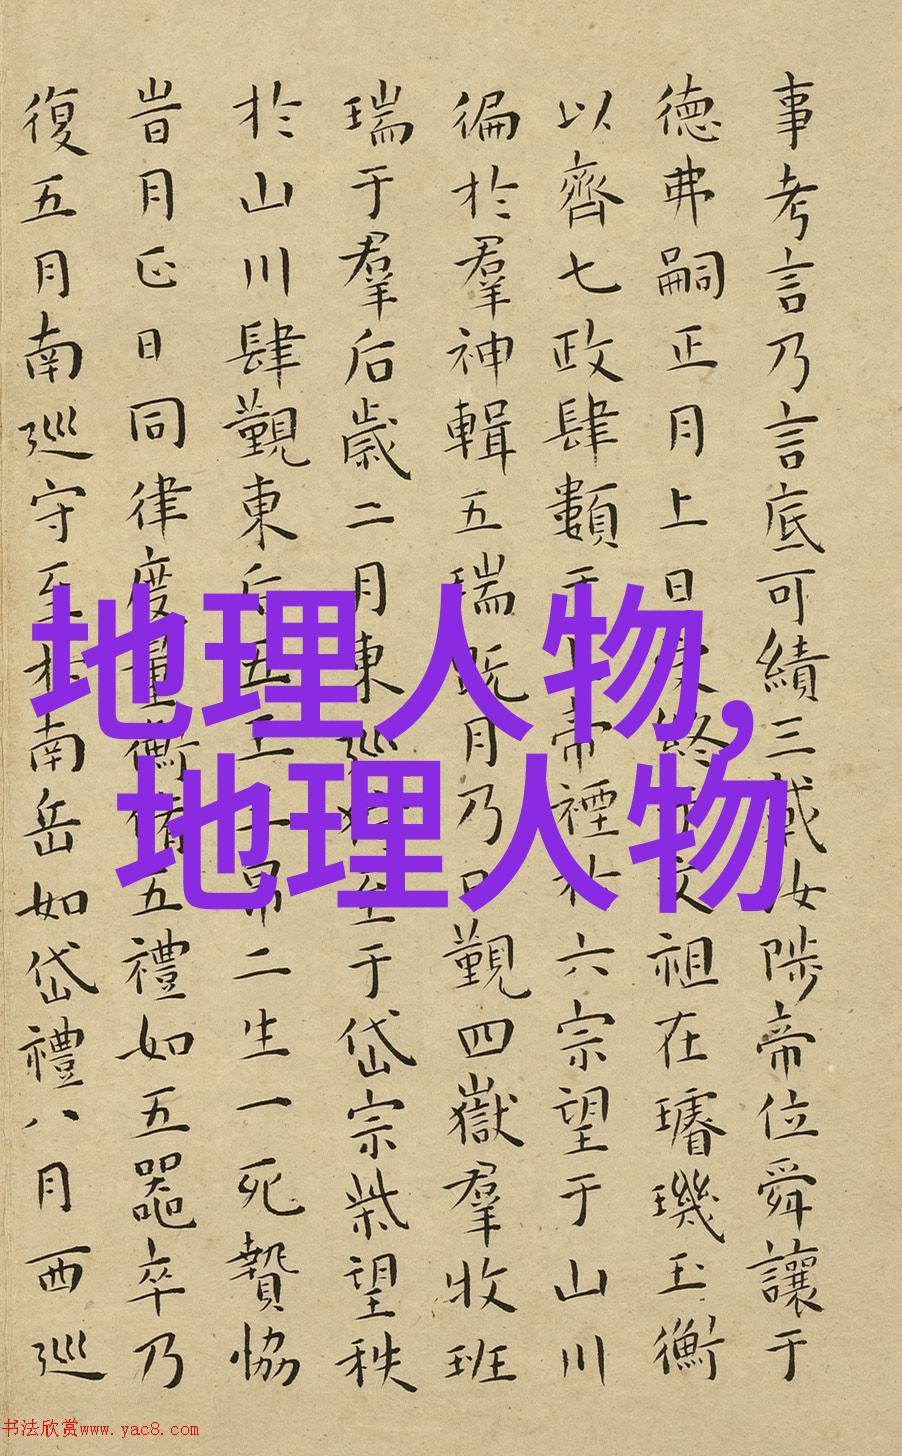 事考言乃言底可績三載汝陟帝位舜讓于
德弗嗣正月上日受終于文祖在璿璣玉衡
以齊七政肆類于上帝禋於六宗望于山川
徧於羣神輯五瑞既月乃日覲四嶽羣牧班
瑞于羣后歲二月東巡狩至于岱宗柴望秩
於山川肆覲東后五玉三帛二生一死贄協
旹月正日同律度量衡脩五禮如五器卒乃
復五月南巡守至於南岳如岱禮八月西巡
地理人物,
地理人物
书法欣赏www.yac8.com